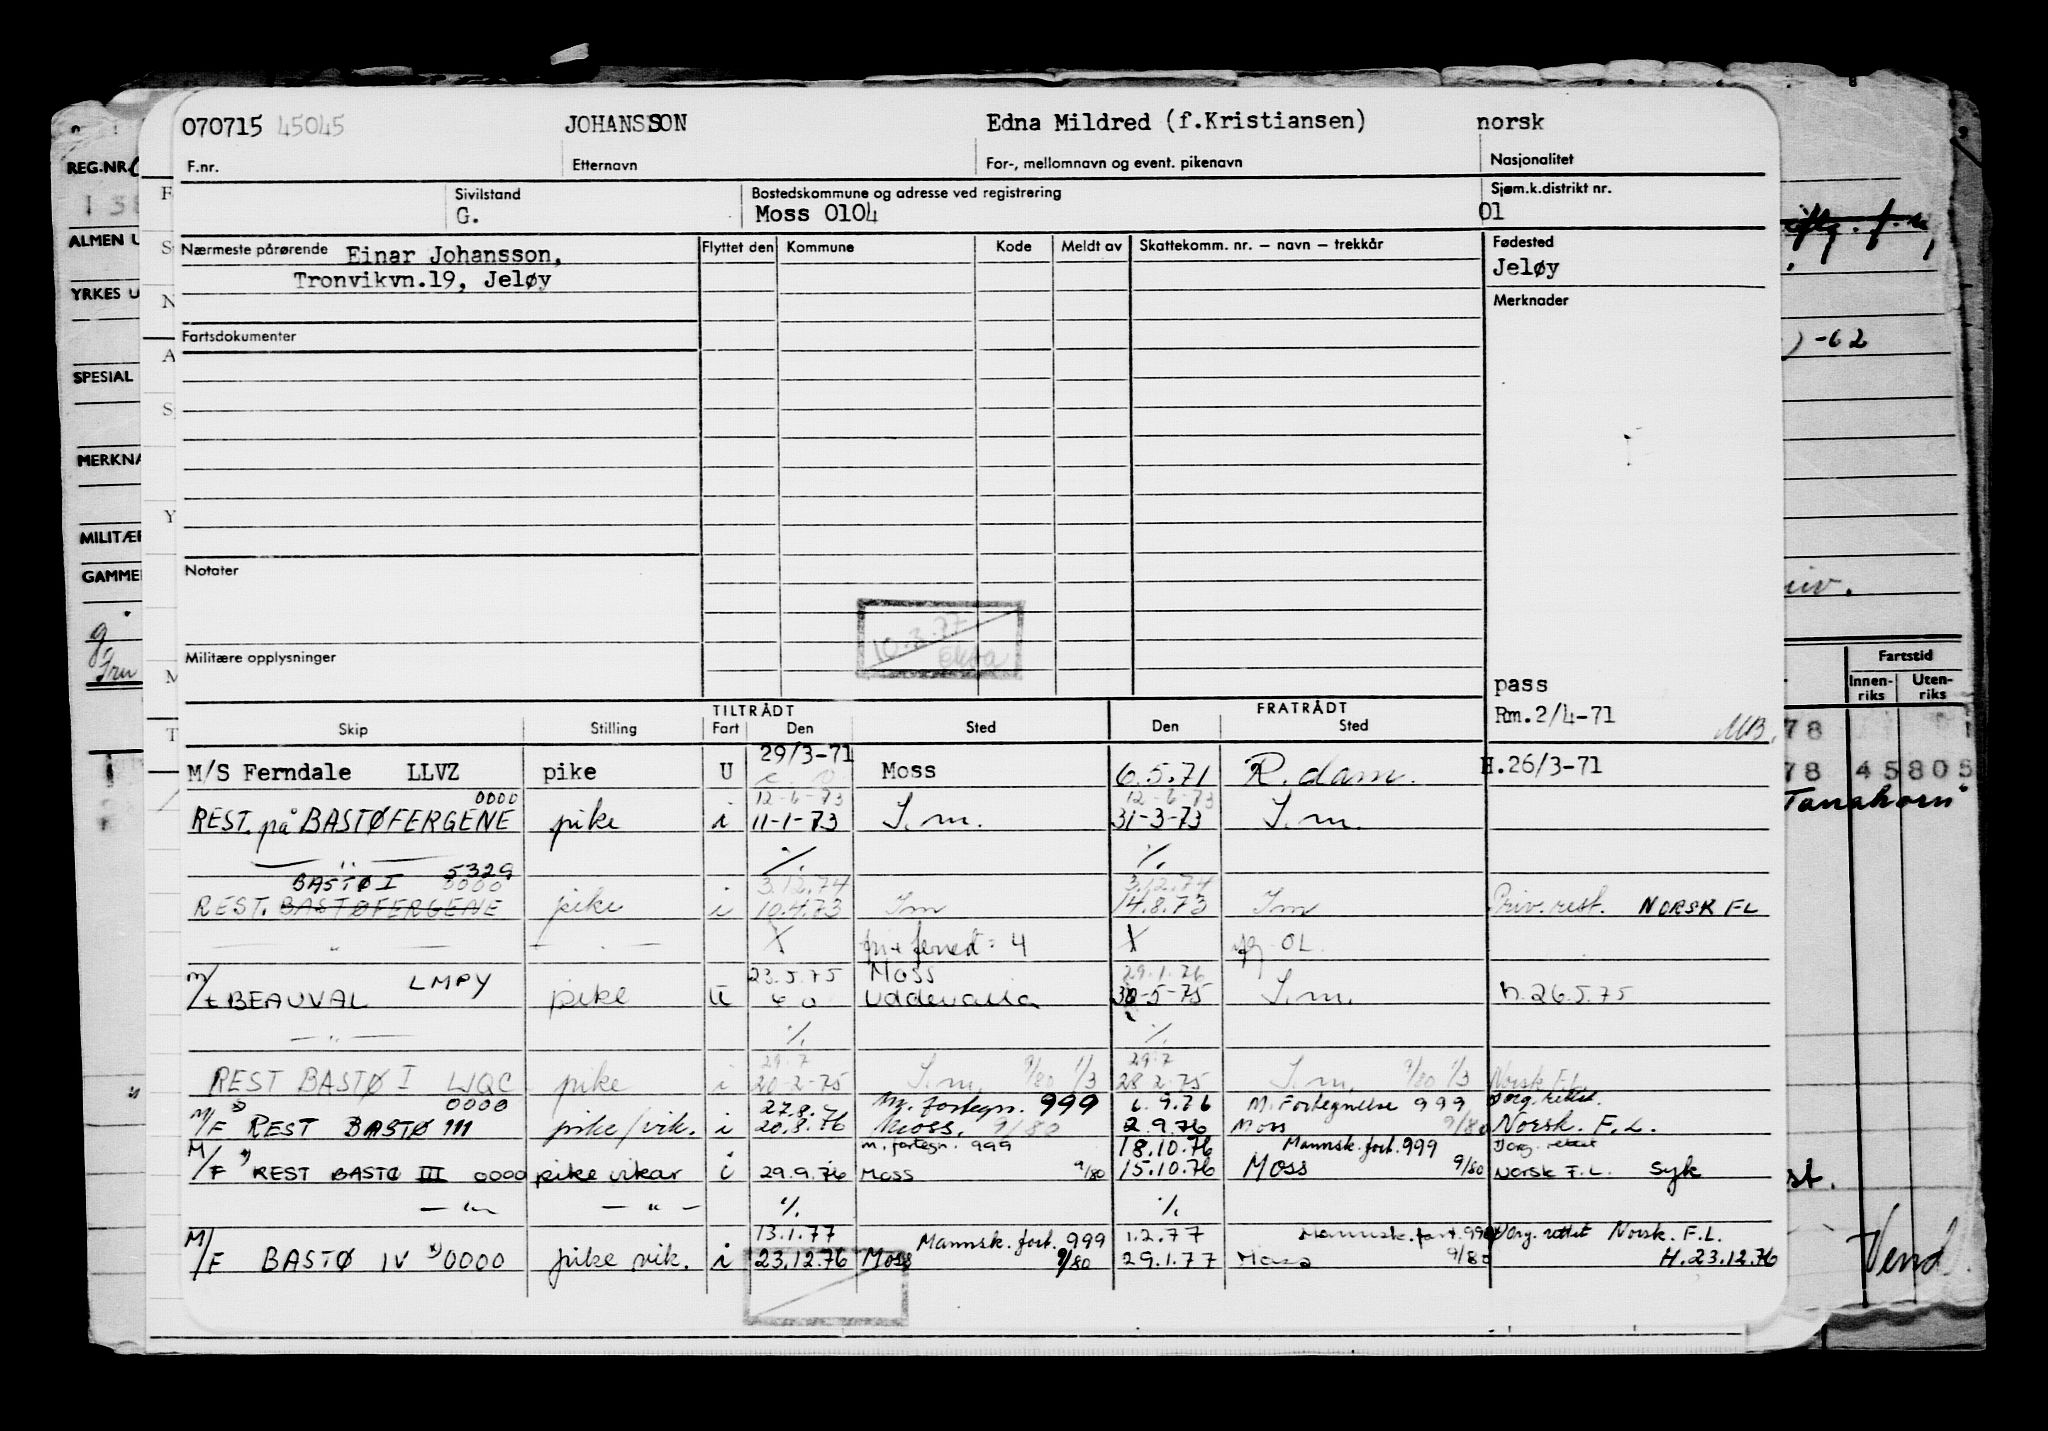 070715 45045 JOHANSSON Edna Mildred (f.Kristiansen) norsk
REG.NR. F.nr. Etternavn For-, mellomnavn og event. pikenavn Nasjonalitet
Sivilstand Bostedskommune og adresse ved registrering Sjøm.k.distrikt nr.
G. Moss 0104 01
ALMEN U
Nærmeste pårørende Einar Johansson, Flyttet den Kommune Kode Meldt av Skattekomm. nr. — navn — trekkår Fødested
Tronvikvn.19, Jeløy Jeløy
YRKES U Merknader
Fartsdokumenter
-62
SPESIAL
MERKNA
MILITÆR
GAMMEL
Notater
10.3.77
Militære opplysninger
Fartstid
Innen-riks Uten-riks
pass
Rm.2/4-71 MB.
TILTRÅDT FRATRÅDT
Skip Stilling Fart Den Sted Den Sted
78
29/3-71
M/S Ferndale LLVZ pike U Moss 6.5.71 R.dam. H.26/3-71
78 45805
0000 12-6-73 12-6-73
REST. på BASTØFERGENE pike i 11-1-73 S.m. 31-3-73 S.m.
"Tanahorn"
— " — ·/. ·/.
BASTØ I 5329 0000 3.12.74 3.12.74
REST. BASTØFERGENE pike i 10.4.73 Sm 14.8.73 Sm Priv.rest. NORSK FL
— " — — " — X 4 X OL.
23.5.75 Moss 29.1.76
M/t BEAUVAL LMPY pike U Uddevalla 30-5-75 S.m. h.26.5.75
— " — ·/. ·/.
29.7 29.7
REST BASTØ I LJQC pike i 20-2-75 S.m. 9/80 1/3 28.2.75 S.m. 9/80 1/3 Norsk F.L.
0000 27.8.76 M. fortegn. 999 6.9.76 M. Fortegnelse 999 Dorg. rettet
M/F REST BASTØ III pike/vik. i 20.8.76 Moss. 9/80 2.9.76 Moss 9/80 Norsk. F.L.
m. fortegn. 999 18.10.76 Mannsk. fort. 999 Dorg. rettet
M/F REST BASTØ III 0000 pike vikar i 29.9.76 Moss 9/80 15.10.76 Moss 9/80 Norsk F.L. Syk
— " — — " — ·/. ·/.
13.1.77 Mannsk. fort. 999 1.2.77 Mannsk. fort. 999 Dorg. rettet Norsk. F.L.
M/F BASTØ IV 0000 pike vik. i 23.12.76 Moss 9/80 29.1.77 Moss 9/80 H.23.12.76
Vend